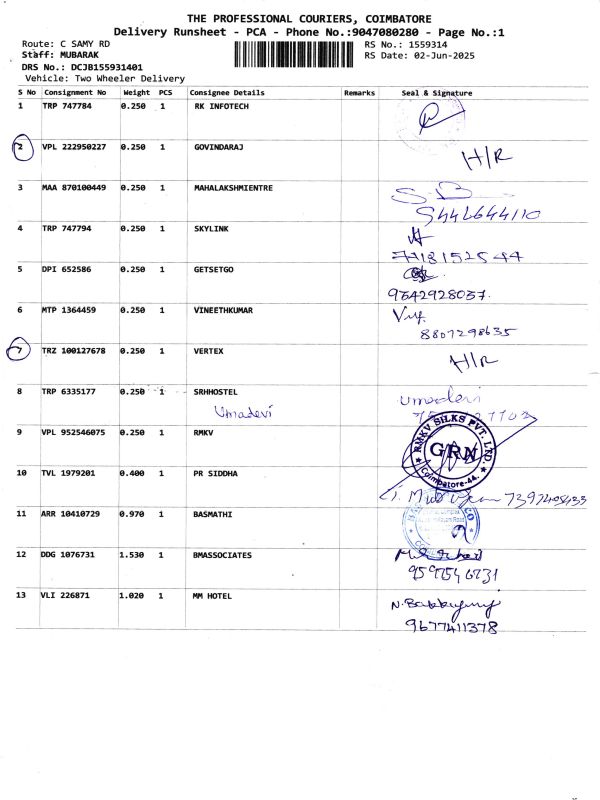 THE PROFESSIONAL COURIERS, COIMBATORE
Delivery Runsheet - PCA - Phone No.:9047080280 - Page No.:1
Route: C SAMY RD
RS No.: 1559314
Staff: MUBARAK
RS Date: 02-Jun-2025
DRS No.: DCJB155931401
Vehicle: Two Wheeler Delivery
S No Consignment No Weight PCS Consignee Details Remarks Seal & Signature
1 TRP 747784 0.250 1 RK INFOTECH
2 VPL 222950227 0.250 1 GOVINDARAJ H/R
3 MAA 870100449 0.250 1 MAHALAKSHMIENTRE
9442644110
4 TRP 747794 0.250 1 SKYLINK
5 DPI 652586 0.250 1 GETSETGO
9542928057.
6 MTP 1364459 0.250 1 VINEETHKUMAR
8807298635
7 TRZ 100127678 0.250 1 VERTEX H/R
8 TRP 6335177 0.250 1 SRHHOSTEL Umadevi
Umadevi
9 VPL 952546075 0.250 1 RMKV
RMKV SILKS PVT. LTD
GRN
Coimbatore-44.
10 TVL 1979201 0.400 1 PR SIDDHA
7397408433
11 ARR 10410729 0.970 1 BASMATHI
12 DDG 1076731 1.530 1 BMASSOCIATES
13 VLI 226871 1.020 1 MM HOTEL
9677411378